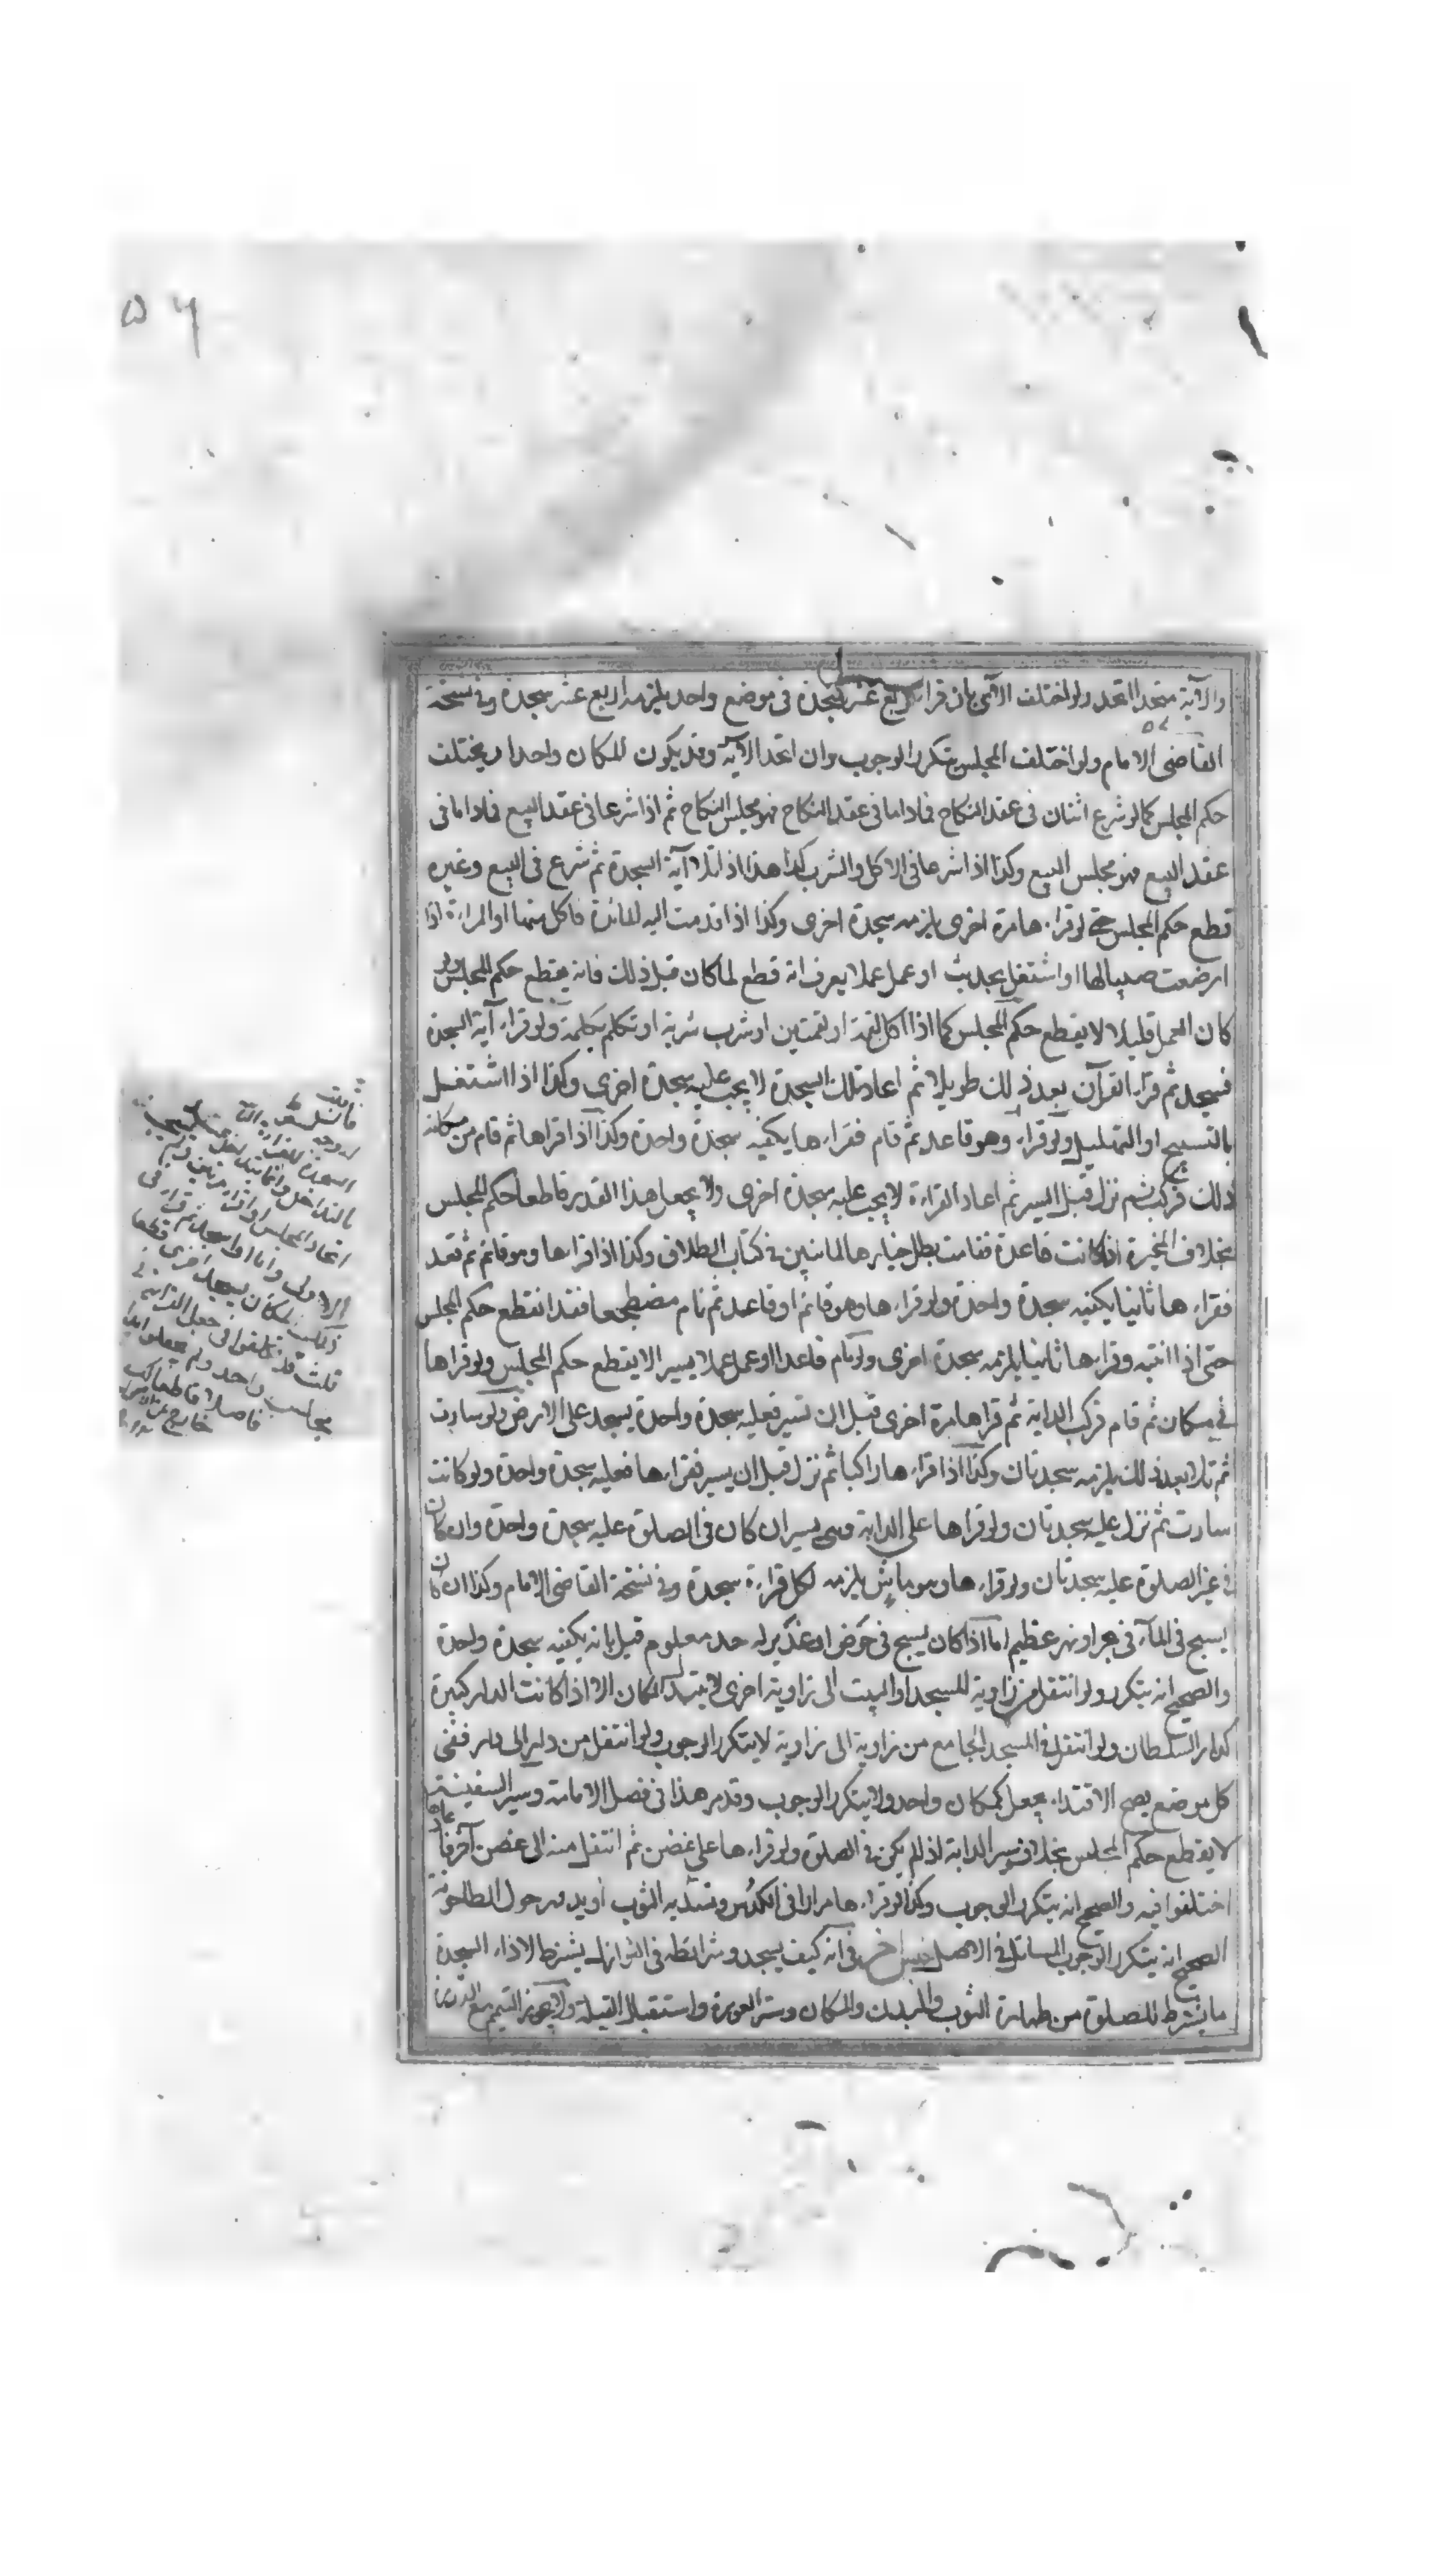 ۵۶
والآية متحدا اتحد ولو اختلف الآي بان قرأ اربع عشر سجدة في موضع واحد يلزمه اربع عشر سجدة وفي نسخة
القاضي الامام ولو اختلف المجلس يتكرر الوجوب وان اتحد الآية وقد يكون المكان واحدا ويختلف
حكم المجلس كما لو شرع اثنان في عقد النكاح فما داما في عقد النكاح فهو مجلس النكاح ثم اذا شرعا في عقد البيع فما داما في
عقد البيع فهو مجلس البيع وكذا اذا شرعا في الاكل والشرب كذا هذا اذا تلا آية السجدة ثم شرع في البيع وغيره
قطع حكم المجلس حتى لو قراءها مرة اخرى يلزمه سجدة اخرى وكذا اذا قدمت اليه المائدة فاكل منها او المراءة اذا
ارضعت صبيا لها او اشتغل بحديث او عمل عملا يعرف انه قطع لما كان قبل ذلك فانه يقطع حكم المجلس ولو
كان العمل قليلا لا يقطع حكم المجلس كما اذا اكل لقمة او لقمتين او شرب شربة او تكلم بكلمة ولو قراء آية السجدة
فسجد ثم قراء القرآن بعد ذلك طويلا ثم اعاد تلك السجدة لا يجب عليه سجدة اخرى وكذا اذا اشتغل
بالتسبيح او التهليل ولو قراء وهو قاعد ثم قام فقراءها يكفيه سجدة واحدة وكذا اذا قراها ثم قام من مكانه
ذلك فركب ثم نزل قبل السير ثم اعاد القراءة لا يجب عليه سجدة اخرى ولا يجعل هذا القدر قاطعا حكم المجلس
بخلاف المخيرة اذا كانت قاعدة فقامت بطل خيارها لما نبين في كتاب الطلاق وكذا اذا قراها وهو قائم ثم قعد
فقراءها ثانيا يكفيه سجدة واحدة ولو قراءها وهو قائم او قاعد ثم نام مضطجعا فقد انقطع حكم المجلس
حتى اذا انتبه وقراءها ثانيا يلزمه سجدة اخرى ولو نام قاعدا او عمل عملا يسيرا لا يقطع حكم المجلس ولو قراها
في مكان ثم قام فركب الدابة ثم قراها مرة اخرى قبل ان تسير فعليه سجدة واحدة يسجد على الارض ولو سارت
ثم تلا بعد ذلك يلزمه سجدتان وكذا اذا قراءها راكبا ثم نزل قبل ان يسير فقراءها فعليه سجدة واحدة ولو كانت
سارت ثم نزل عليه سجدتان ولو قراها على الدابة وهي يسير ان كان في الصلوة عليه سجدة واحدة وان كان
في غير الصلوة عليه سجدتان ولو قراءها وهو ماش يلزمه لكل قراءة سجدة وفي نسخة القاضي الامام وكذا ان كان
يسبح في الماء في بحر او نهر عظيم اما اذا كان يسبح في حوض او غدير له حد معلوم قيل بانه يكفيه سجدة واحدة
والصحيح انه يتكرر ولو انتقل من زاوية المسجد او البيت الى زاوية اخرى لا يتبدل المكان الا اذا كانت الدار كبيرة
كدار السلطان ولو انتقل في المسجد الجامع من زاوية الى زاوية لا يتكرر الوجوب ولو انتقل من دار الى دار ففي
كل موضع يصح الاقتداء يجعل كمكان واحد ولا يتكرر الوجوب وقد مر هذا في فصل الامامة وسير السفينة
لا يقطع حكم المجلس بخلاف سير الدابة اذا لم يكن في الصلوة ولو قراءها على غصن ثم انتقل منه الى غصن آخر فاعادها
اختلفوا فيه والصحيح انه يتكرر الوجوب وكذا لو قراءها مرارا في الكدس وتسدية الثوب او يدور حول الطاحونة
الصحيح انه يتكرر الوجوب المسائل في الاصل جنس آخر في انه كيف يسجد وشرائطه في النوازل يشترط لاداء السجدة
ما يشترط للصلوة من طهارة الثوب والبدن والمكان وستر العورة واستقبال القبلة ولا يجوز التيمم مع القدرة
بالتداخل
اتحاد المجلس
الاولى واما اذا سجد ثم قراء في
ذلك المكان يسجد اخرى